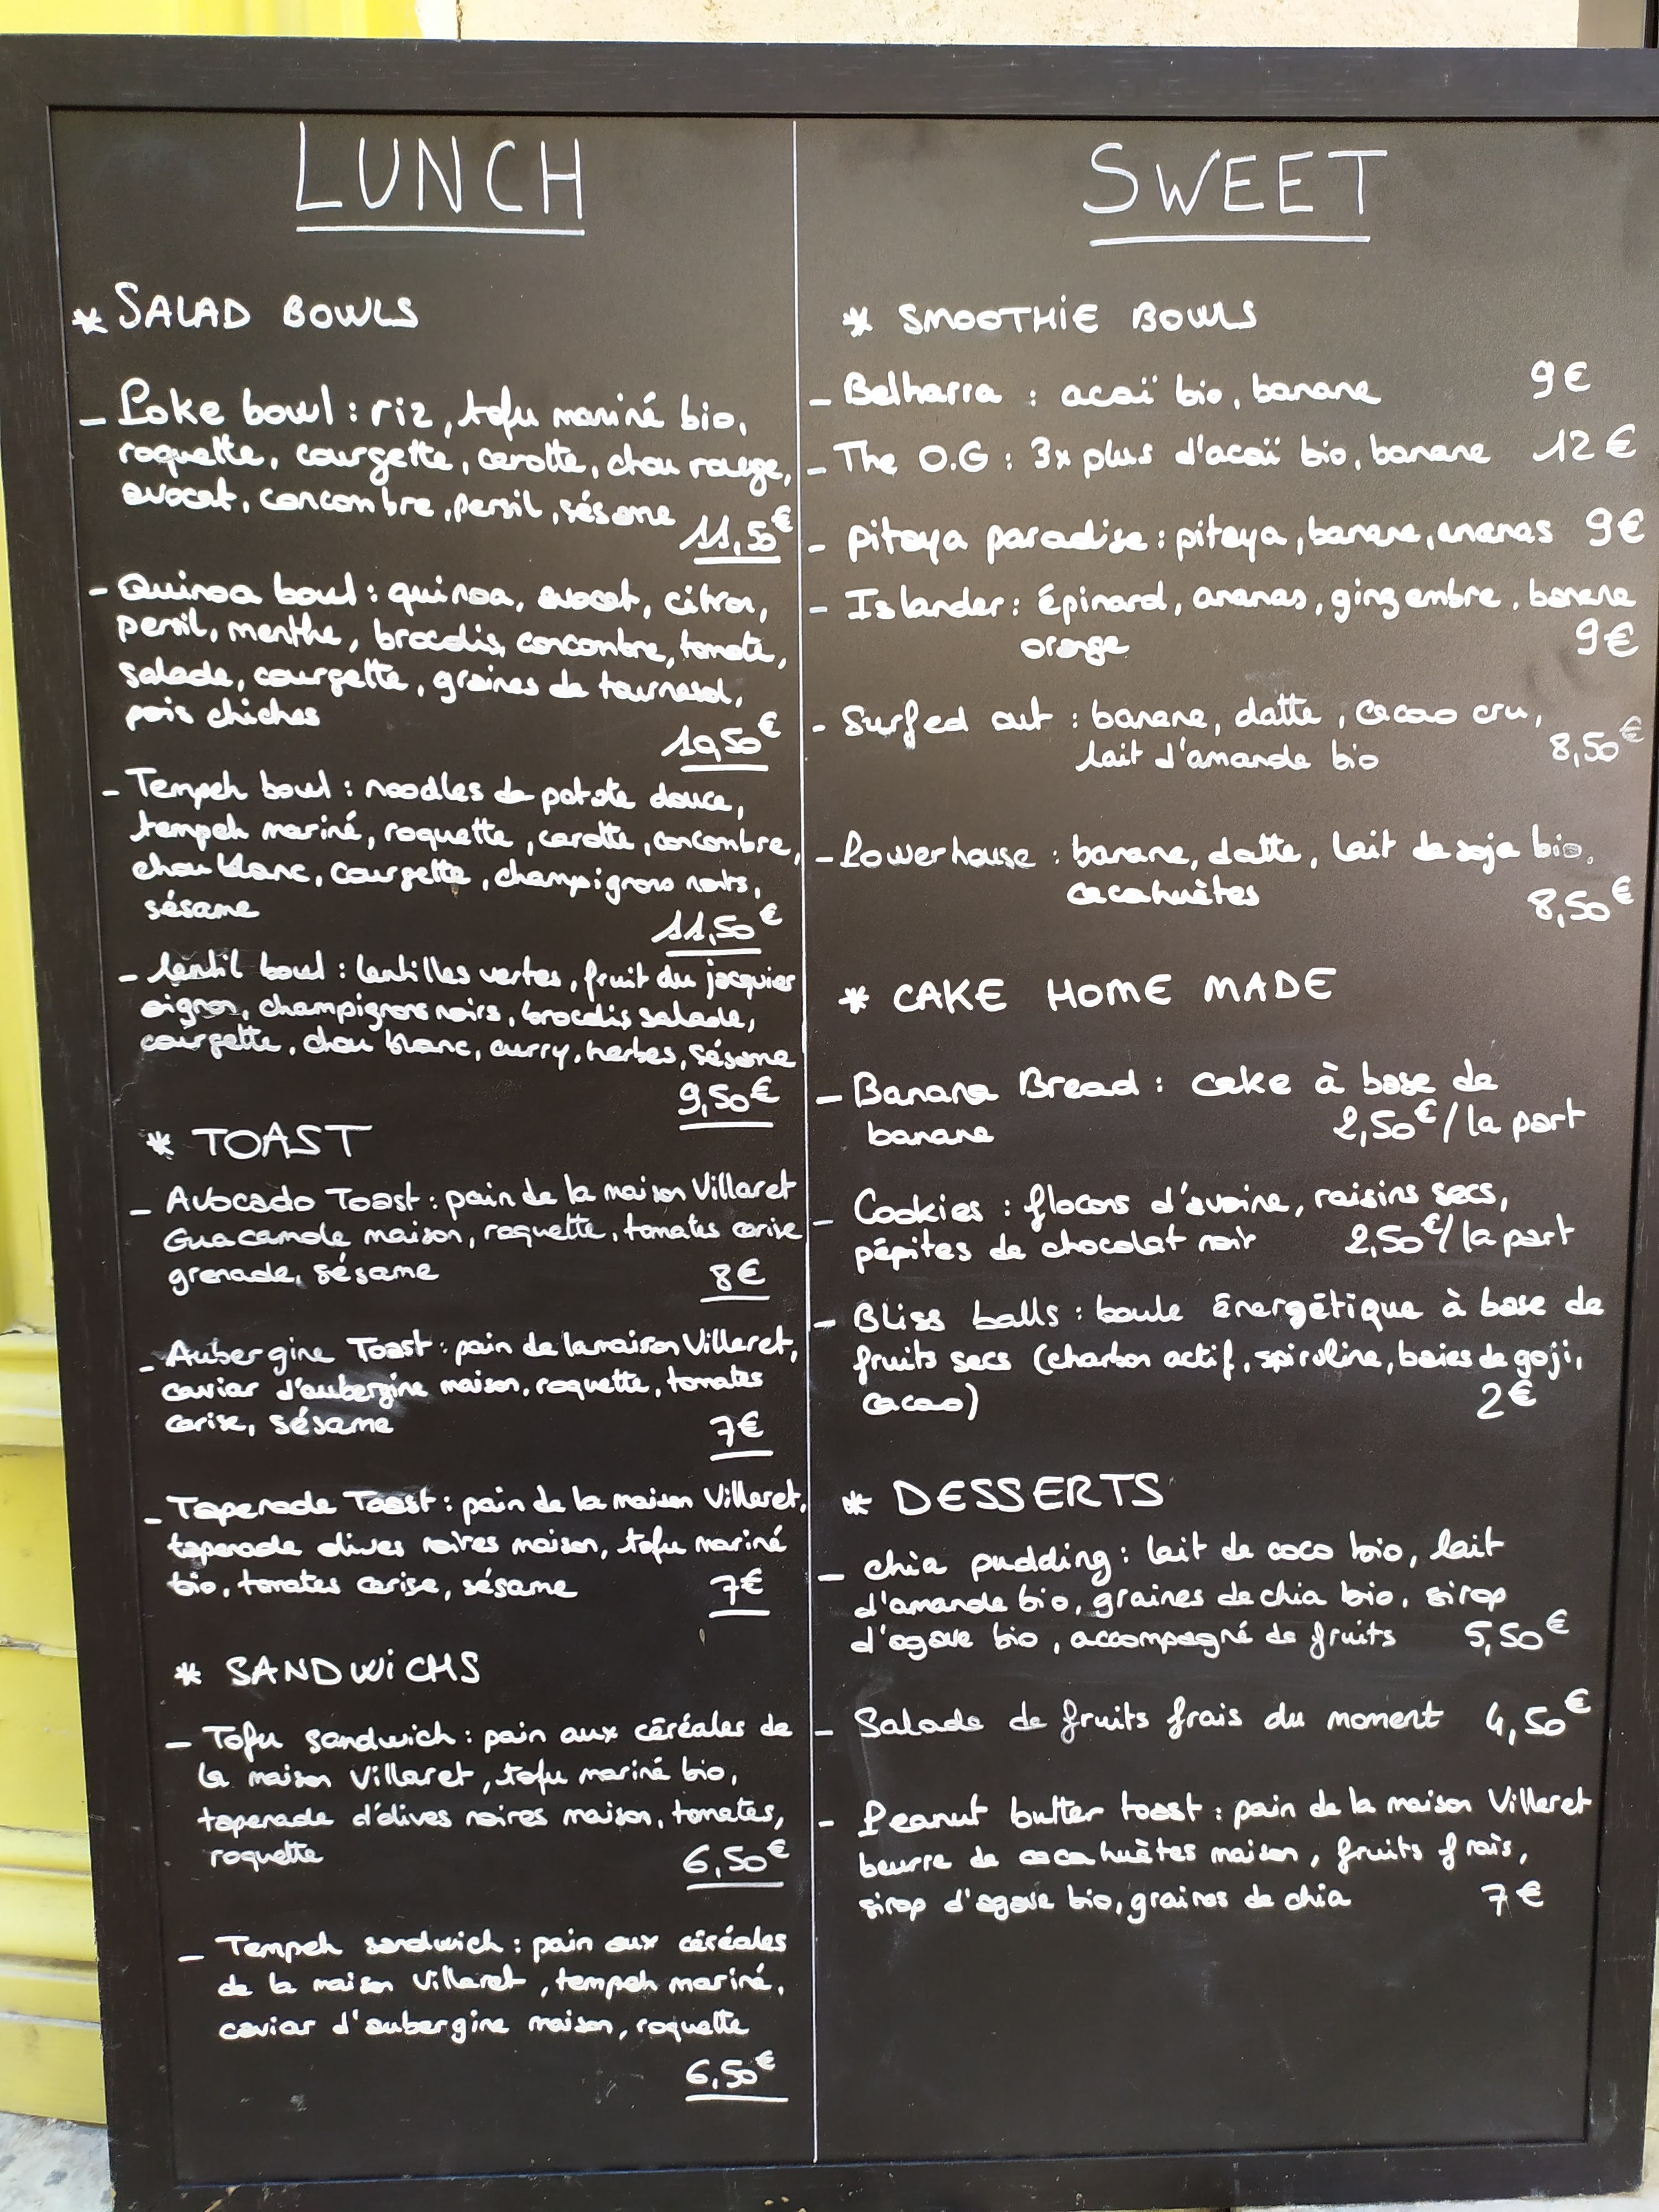 LUNCH
* SALAD BOWLS
- Poke bowl : riz, tofu mariné bio,
roquette, courgette, carotte, chou rouge,
avocat, concombre, persil, sésame
11,50€
- Quinoa bowl : quinoa, avocat, citron,
persil, menthe, brocolis, concombre, tomate,
salade, courgette, graines de tournesol,
pois chiches
10,50€
- Tempeh bowl : noodles de patate douce,
tempeh mariné, roquette, carotte, concombre,
chou blanc, courgette, champignons noirs,
sésame
11,50€
- Lentil bowl : lentilles vertes, fruit du jacquier
oignon, champignons noirs, brocolis salade,
courgette, chou blanc, curry, herbes, sésame
9,50€
* TOAST
- Avocado Toast : pain de la maison Villaret
Guacamole maison, roquette, tomates cerise
grenade, sésame 8€
- Aubergine Toast : pain de la maison Villaret,
caviar d'aubergine maison, roquette, tomates
cerise, sésame 7€
- Tapenade Toast : pain de la maison Villaret,
tapenade olives noires maison, tofu mariné
bio, tomates cerise, sésame 7€
* SANDWICHS
- Tofu sandwich : pain aux céréales de
la maison Villaret, tofu mariné bio,
tapenade d'olives noires maison, tomates,
roquette 6,50€
- Tempeh sandwich : pain aux céréales
de la maison Villaret, tempeh mariné,
caviar d'aubergine maison, roquette
6,50€
SWEET
* SMOOTHIE BOWLS
- Belharra : acaï bio, banane 9€
- The O.G : 3x plus d'acaï bio, banane 12€
- pitaya paradise : pitaya, banane, ananas 9€
- Islander : épinard, ananas, gingembre, banane
orange 9€
- Surfed out : banane, datte, cacao cru,
lait d'amande bio 8,50€
- Powerhouse : banane, datte, lait de soja bio,
cacahuètes 8,50€
* CAKE HOME MADE
- Banana Bread : cake à base de
banane 2,50€/la part
- Cookies : flocons d'avoine, raisins secs,
pépites de chocolat noir 2,50€/la part
- Bliss balls : boule énergétique à base de
fruits secs (charbon actif, spiruline, baies de goji,
cacao) 2€
* DESSERTS
- chia pudding : lait de coco bio, lait
d'amande bio, graines de chia bio, sirop
d'agave bio, accompagné de fruits 5,50€
- Salade de fruits frais du moment 4,50€
- Peanut butter toast : pain de la maison Villaret
beurre de cacahuètes maison, fruits frais,
sirop d'agave bio, graines de chia 7€